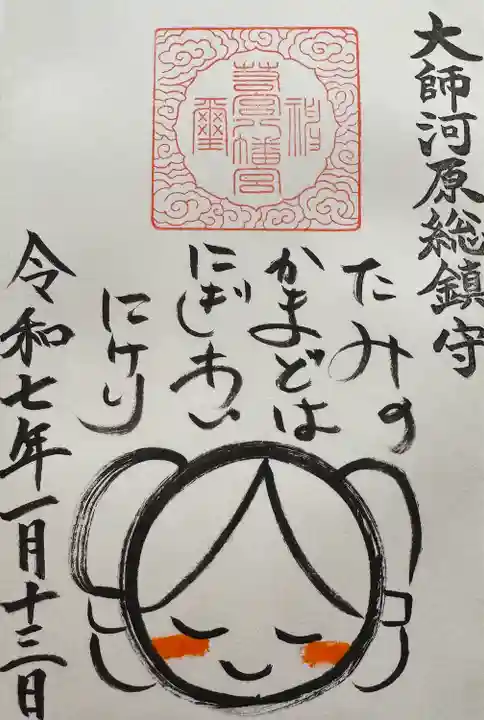 大師河原総鎮守
若宮八幡宮
たみの
かまどは
にぎわい
にけり
令和七年一月十三日